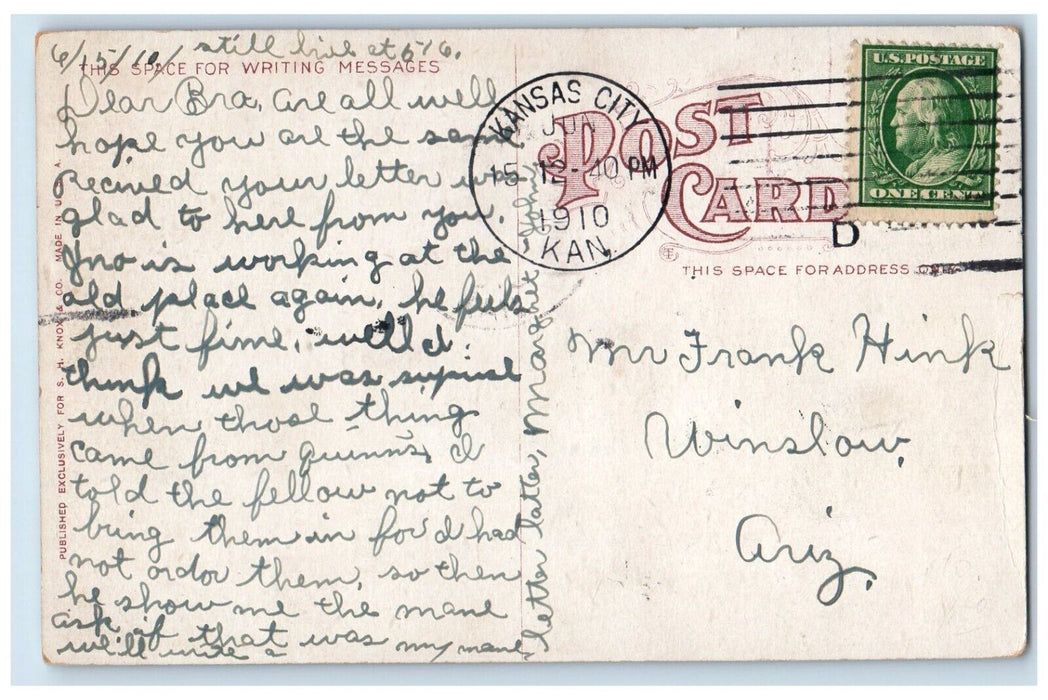 6/15/10/ still live at 616.
THIS SPACE FOR WRITING MESSAGES
Dear Bra, are all well
hope you are the same
Recived your letter was
glad to here from you.
Jno is working at the
old place again, he feels
just fine, well I
think we was suprise
when those thing
came from Quinns, I
told the fellow not to
bring them in for I had
not ordor them, so then
he show me the mane
ask if that was my mane
we'll write a
letter latter, Margret
PUBLISHED EXCLUSIVELY FOR S. H. KNOX & CO. MADE IN U. S. A.
KANSAS CITY
JUN
15 12-40 PM
1910
KAN.
POST
CARD
D
U.S. POSTAGE
ONE CENT
THIS SPACE FOR ADDRESS ONLY
Mr Frank Hink
Winslow,
Ariz.